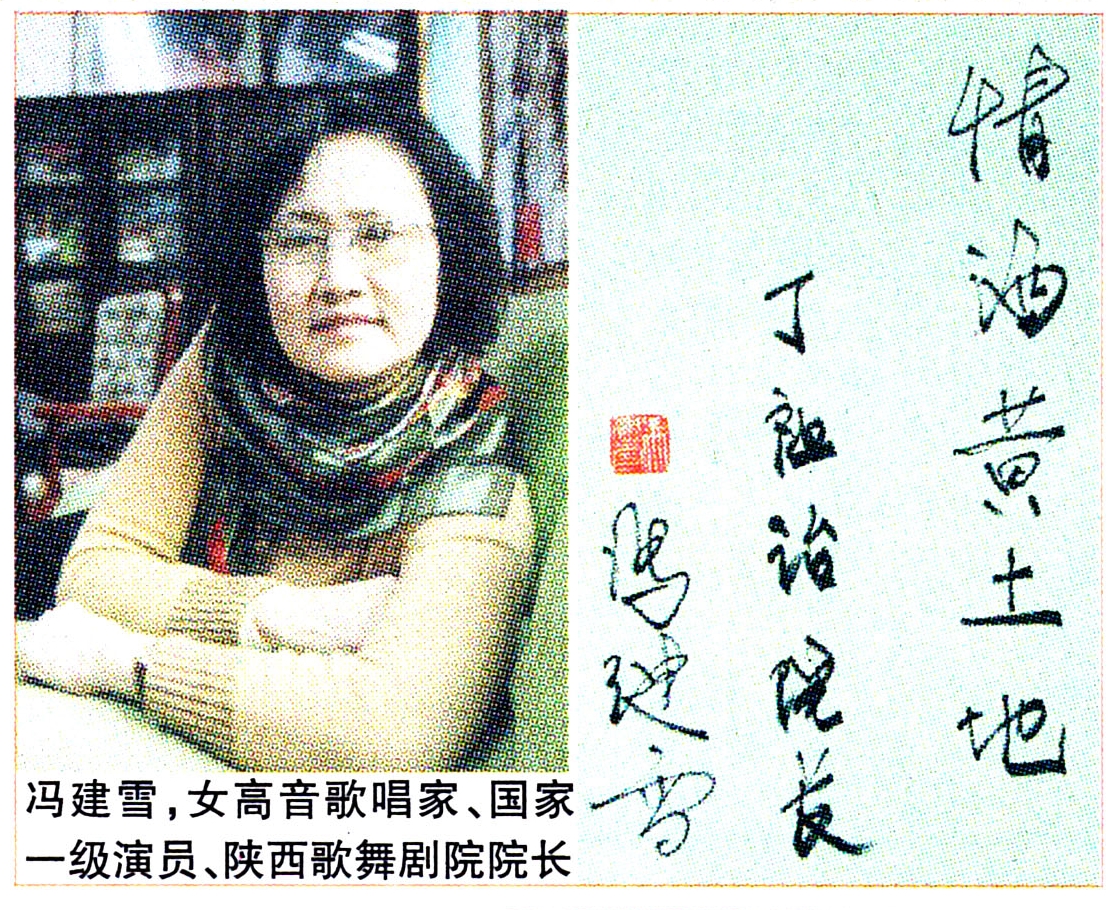 冯建雪,女高音歌唱家、国家
一级演员、陕西歌舞剧院院长
情洒黄土地
丁祖诒院长
冯建雪